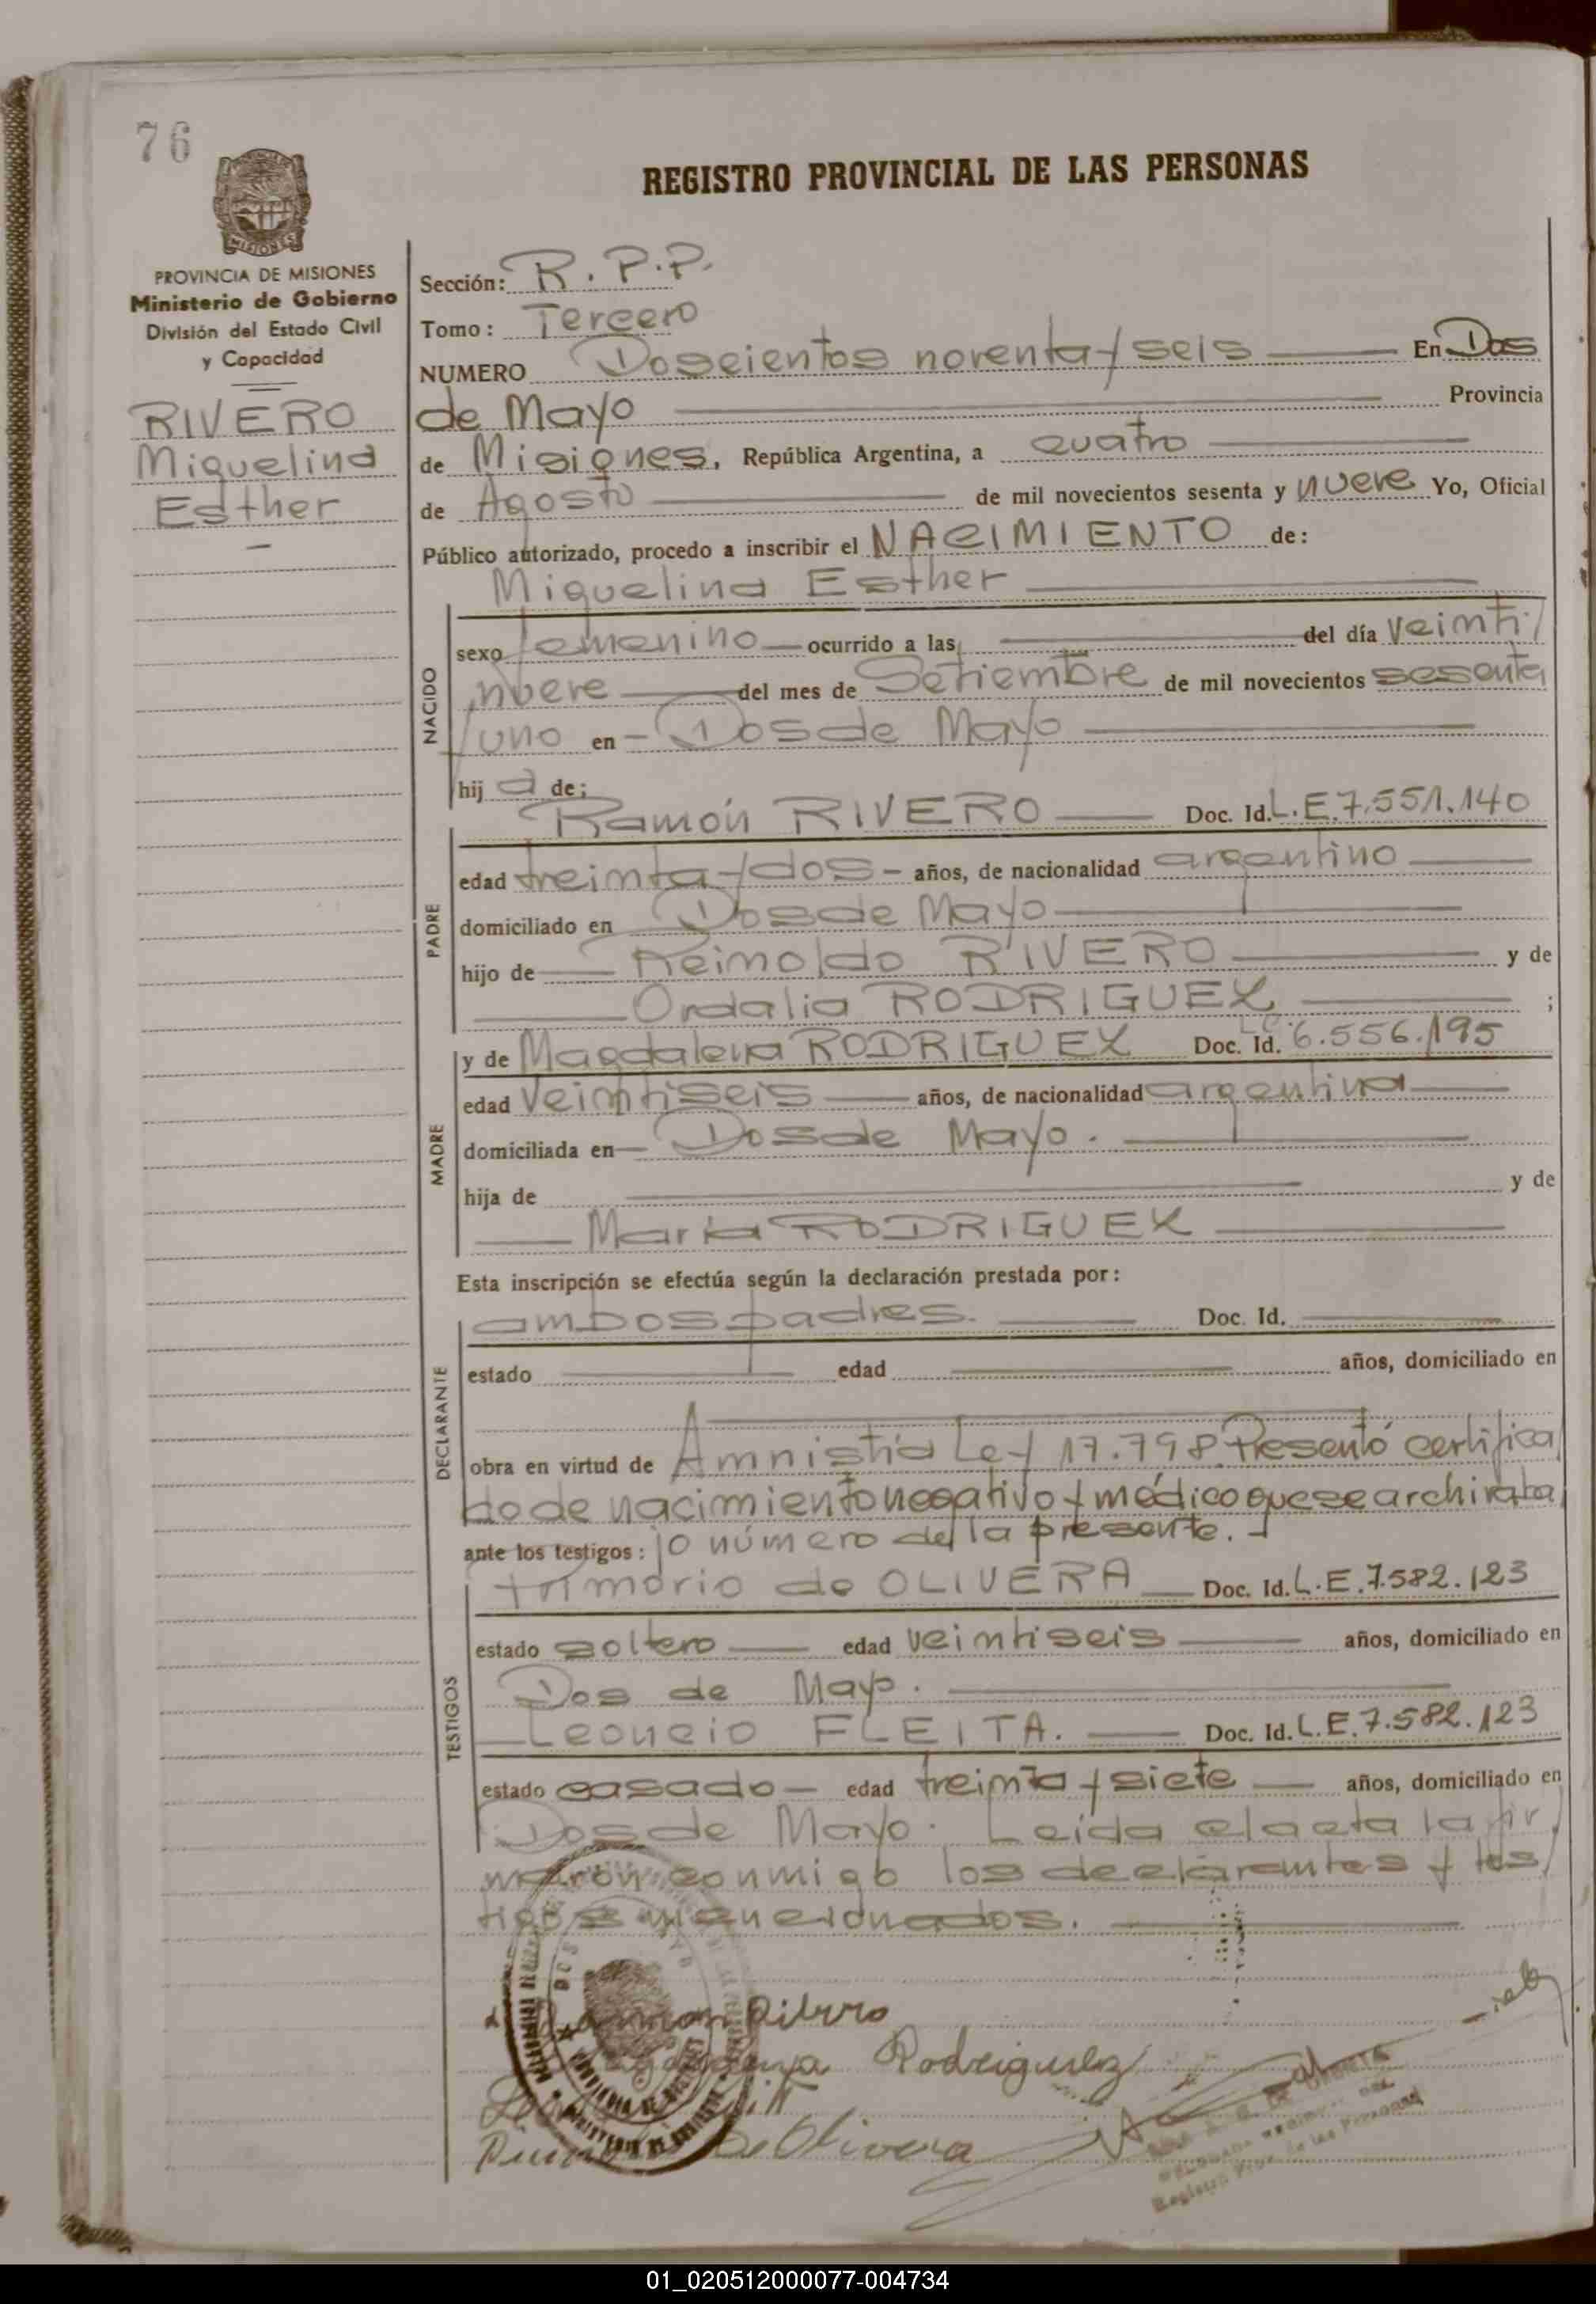 76
REGISTRO PROVINCIAL DE LAS PERSONAS
MISIONES
PROVINCIA DE MISIONES
Ministerio de Gobierno
División del Estado Civil
y Capacidad
RIVERO
Miguelina
Esther
Sección: R. P.P.
Tomo: Tercero
NUMERO Doscientos noventa y seis En Dos
de Mayo Provincia
de Misiones, República Argentina, a cuatro
de Agosto de mil novecientos sesenta y nueve Yo, Oficial
Público autorizado, procedo a inscribir el NACIMIENTO de:
Miguelina Esther
NACIDO
sexo femenino ocurrido a las del día veinti/
nueve del mes de Setiembre de mil novecientos sesenta
y uno en - Dos de Mayo
hij a de:
Ramón RIVERO Doc. Id. L.E. 7.551.140
PADRE
edad treinta y dos - años, de nacionalidad argentino
domiciliado en Dos de Mayo
hijo de Reinoldo RIVERO y de
Ordalia RODRIGUEZ ;
MADRE
y de Magdalena RODRIGUEZ Doc. Id. L.C. 6.556.195
edad Veintiseis años, de nacionalidad argentina
domiciliada en Dos de Mayo.
hija de y de
María RODRIGUEZ
Esta inscripción se efectúa según la declaración prestada por:
DECLARANTE
ambos padres. Doc. Id.
estado edad años, domiciliado en
obra en virtud de Amnistía Ley 17.798. Presentó certifica
do de nacimiento negativo y médico que se archiva ba
ante los testigos: jo número de la presente.
TESTIGOS
de OLIVERA Doc. Id. L.E. 7.582.123
estado soltero edad veintiseis años, domiciliado en
Dos de Mayo.
Leoncio FLEITA. Doc. Id. L.E. 7.582.123
estado casado - edad treinta y siete años, domiciliado en
Dos de Mayo. Leída el acta la fir/
maron conmigo los declarantes y tes/
tigos mencionados.
Ramon Rivero
Rodriguez
De Olivera
Registro Prov. de las Personas
01_020512000077-004734